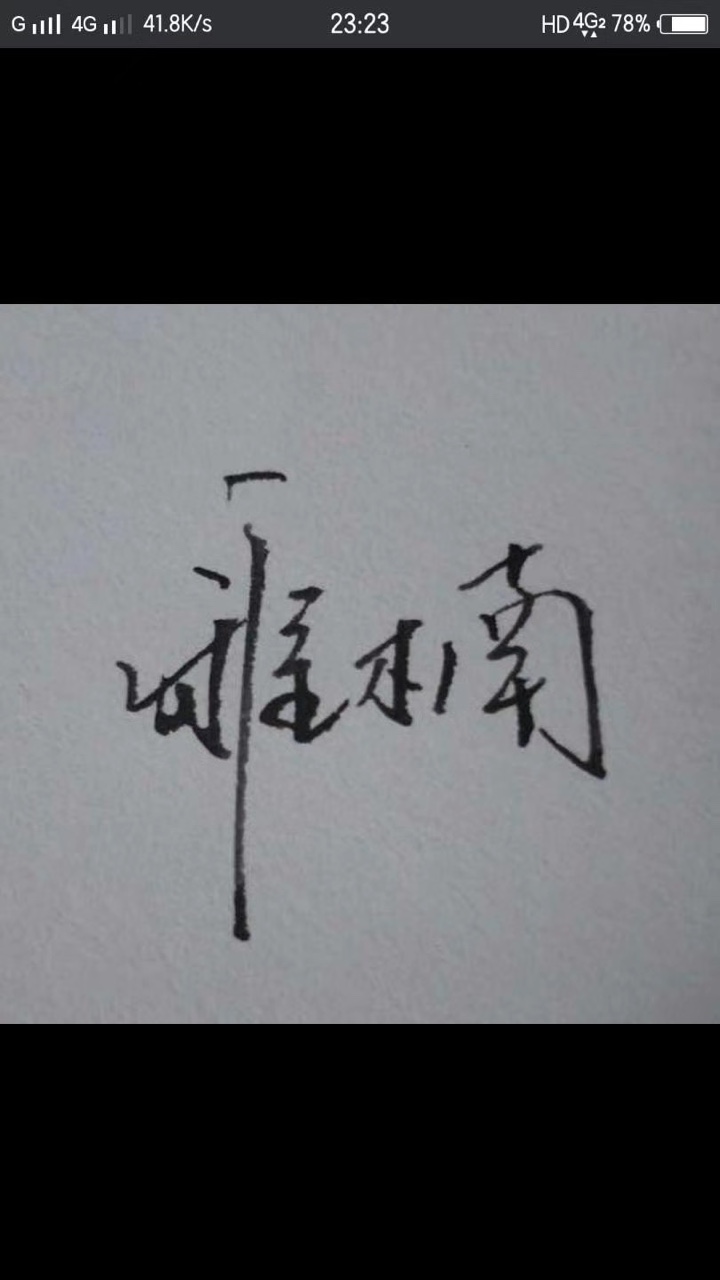 G 4G 41.8K/s 23:23 HD 4G2 78%
雅楠